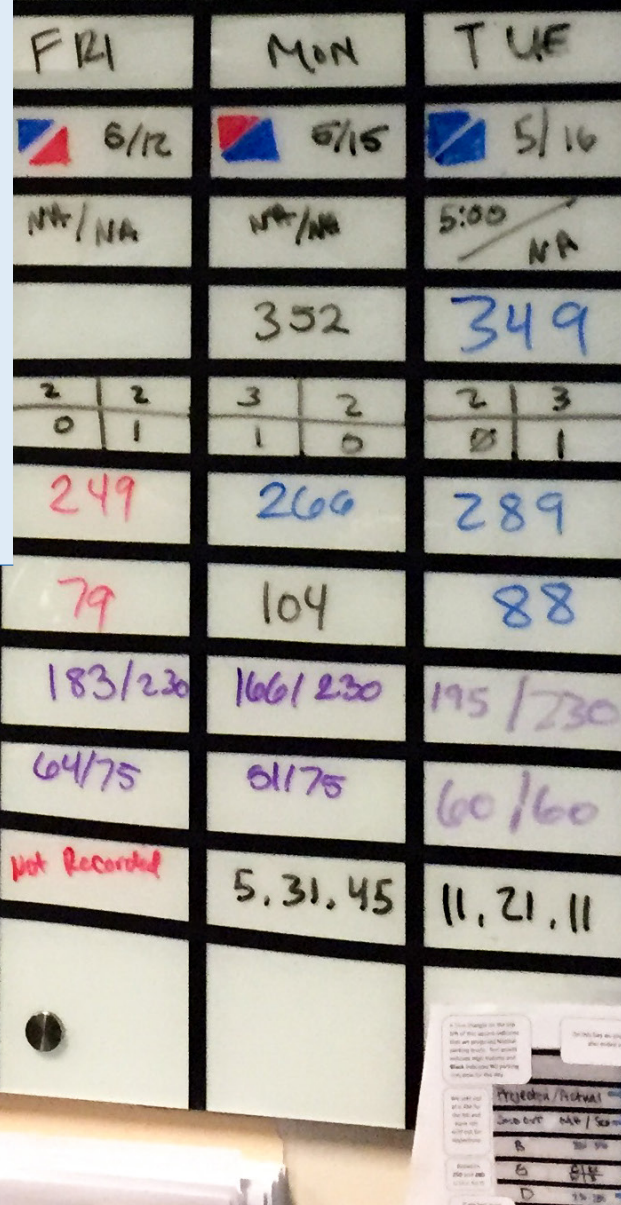 FRI MON TUE
5/12 5/15 5/16
NA/NA NA/NA 5:00/NA
352 349
2 2 3 2 2 3
0 1 1 0 0 1
249 266 289
79 104 88
183/230 166/230 195/230
64/75 51/75 60/60
Not Recorded 5.31.45 11.21.11
Projected/Actual
B
D